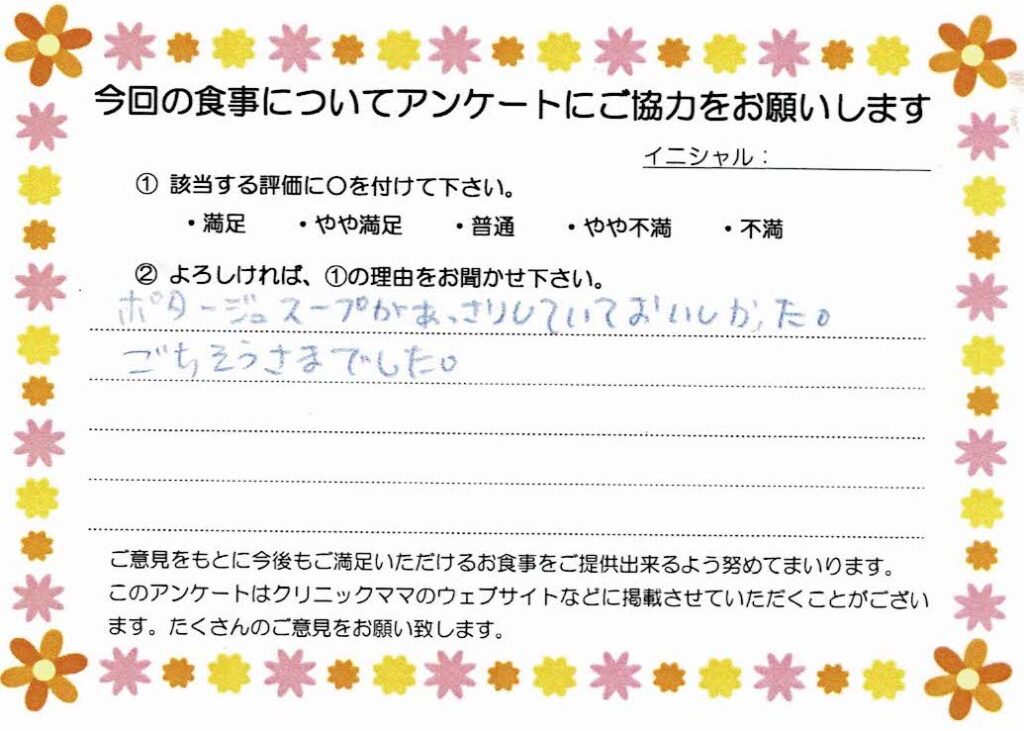 今回の食事についてアンケートにご協力をお願いします
イニシャル：
① 該当する評価に〇を付けて下さい。
・満足 ・やや満足 ・普通 ・やや不満 ・不満
② よろしければ、①の理由をお聞かせ下さい。
ポタージュスープがあっさりしていておいしかった。
ごちそうさまでした。
ご意見をもとに今後もご満足いただけるお食事をご提供出来るよう努めてまいります。
このアンケートはクリニックママのウェブサイトなどに掲載させていただくことがござい
ます。たくさんのご意見をお願い致します。